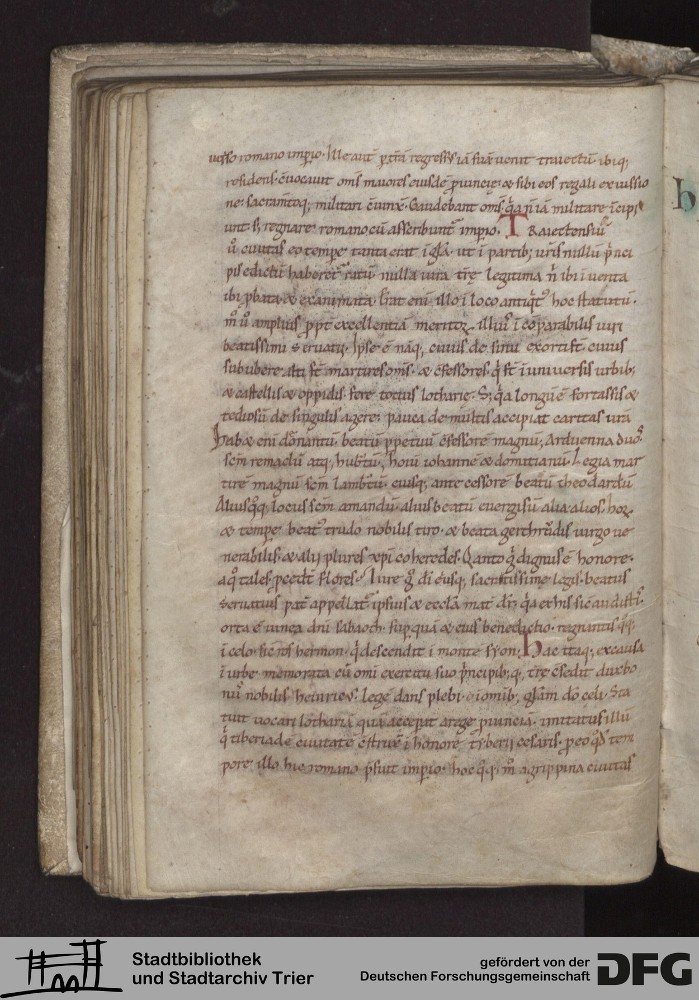 uerso romano imperio. Ille aut p tra regressus iā suā uenit traiectū. ibiq;
residens. c̄uocauit oms maiores eiusdē puincie. & sibi eos regali ex iussio
ne. sacramtoq; militari c̄iunx. Gaudebant oms. q̄a n̄ iā militare. īcipi
unt. s; regnare. romano cū asscribunt impio. Traiectensiū
u̾ ciuitas eo tempe tanta erat ī gła. ut ī partib; uris nullū p̄nci
pis edictū haberet ratū. nulla uita trę legitima n̄ ibi īuenta
ibi pbata. & examinata.
m̄ u̾ amplius ppt excellentiā meritoꝝ. illiu̾ īc̄parabilis uiri
beatissimi seruatii. Ipse ē nāq; cuius de sinu exorti st. cuius
sub ubere asti st martires oms. & c̄fessores. q̄ st ī uniuersis urbib;
& castellis & oppidis. fere totius lotharie. S; q̄a longū ē fortassis &
tediosū de singulis agere. pauca de multis accipiat caritas urā
hab& eni dōnantū. beatū ppetuū c̄fessorē magnū. Arduenna duos
scm remaclū atq; hubtū. hoiū iohannē & domitianū. Legia mar
tire magnū scm lambtū. eiusq; ante cessorē beatū theodardū
Aliusq̄q; locus scm amandū. alius beatū euergisū alia. alios. hoꝝ
& tempe beat trudo nobilis tiro. & beata gerthrudis uirgo ue
nerabilis. & alii plures xpi coheredes. Qanto q̄ dignus ē honore.
a q̄ tales pcedt flores. Iure g̊ di eiusq; sacratissime legis. beatus
seruatius pat appellat. ipsius & ecclā mat dr. q̄a ex his sic audistis.
orta ē uinea dni sabaoth. sup quā & eius benedictio. regnantis
ī celo. sic ros hermon. q̄ descendit ī monte syon. Hac itaq; ex causa
ī urbe memorata cū omi exercitu suo p̄ncipib; q; trę c̄sedit dux bo
nu̾ nobilis heinric̄. lege dans plebi. ī omib; głam dō celi. Sta
tuit uocari lothariā quā accepit a rege puinciā. imitatus illū
q̄ tiberiadē ciuitatē c̄strux̄ ī honore tyberii cesaris. p eo q̄d tem
pore illo hic romano p̄fuit impio. hoc q̄q; m̄ agrippina ciuitas
h
Stadtbibliothek
und Stadtarchiv Trier
gefördert von der
Deutschen Forschungsgemeinschaft
DFG